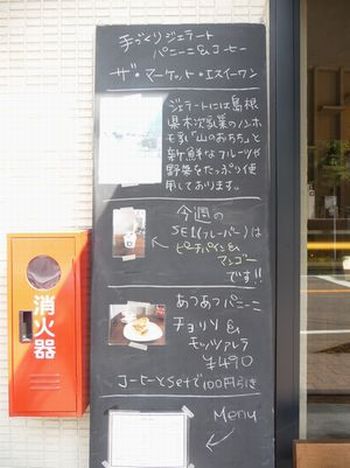 手づくりジェラート
パニーニ&コーヒー
ザ・マーケット・エスイーワン
ジェラートには島根
県木次乳業のノンホ
モ乳「山のおちち」と
新鮮なフルーツや
野菜をたっぷり使
用しております。
今週の
SE1(フレーバー)は
ピーチパイン&
マンゴー
です!!
あつあつパニーニ
チョリソ&
モッツァレラ
¥490
コーヒーとsetで100円引き
Menu
消火器